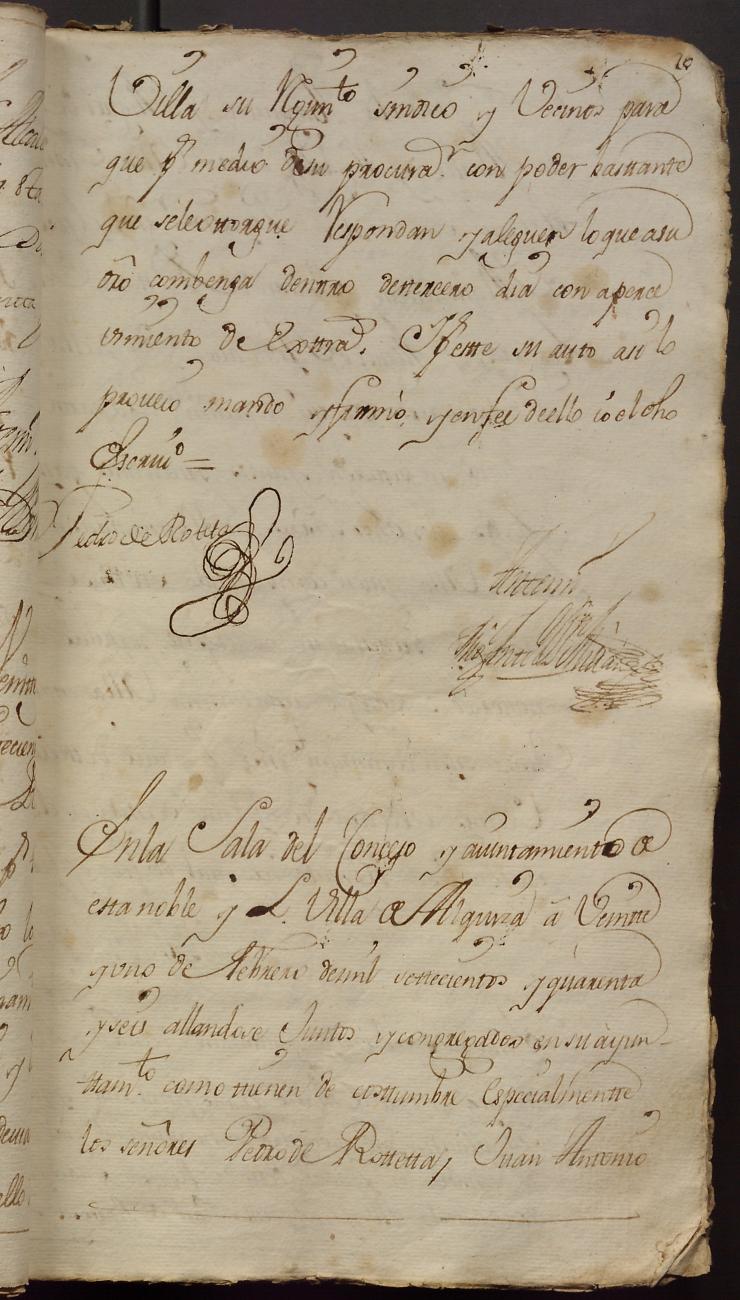 20
Villa su Regim.to sindico y Vecinos para
que p.r medio desu procurad.r con poder bastante
que seleottorgue Respondan yaleguen loqueasu
dro combenga denttro detterzero dia con aperce
vimiento de Exttrad. Y Por este su auto asi lo
proveio mando yfirmo, yenfee deello io el dho
Escriv.o =
Pedro de Rotteta
Antte mi
Enla Sala del Concejo y aiuntamiento de
esta noble y L. Villa de Alquiza â Veintte
yuno de Febrero demil settecientos yquarenta
yseis allandose Juntos ycongregados en su aiun-
ttam.to como ttienen de costtumbre Especialmentte
los señores Pedro de Rotteta, Juan Antonio